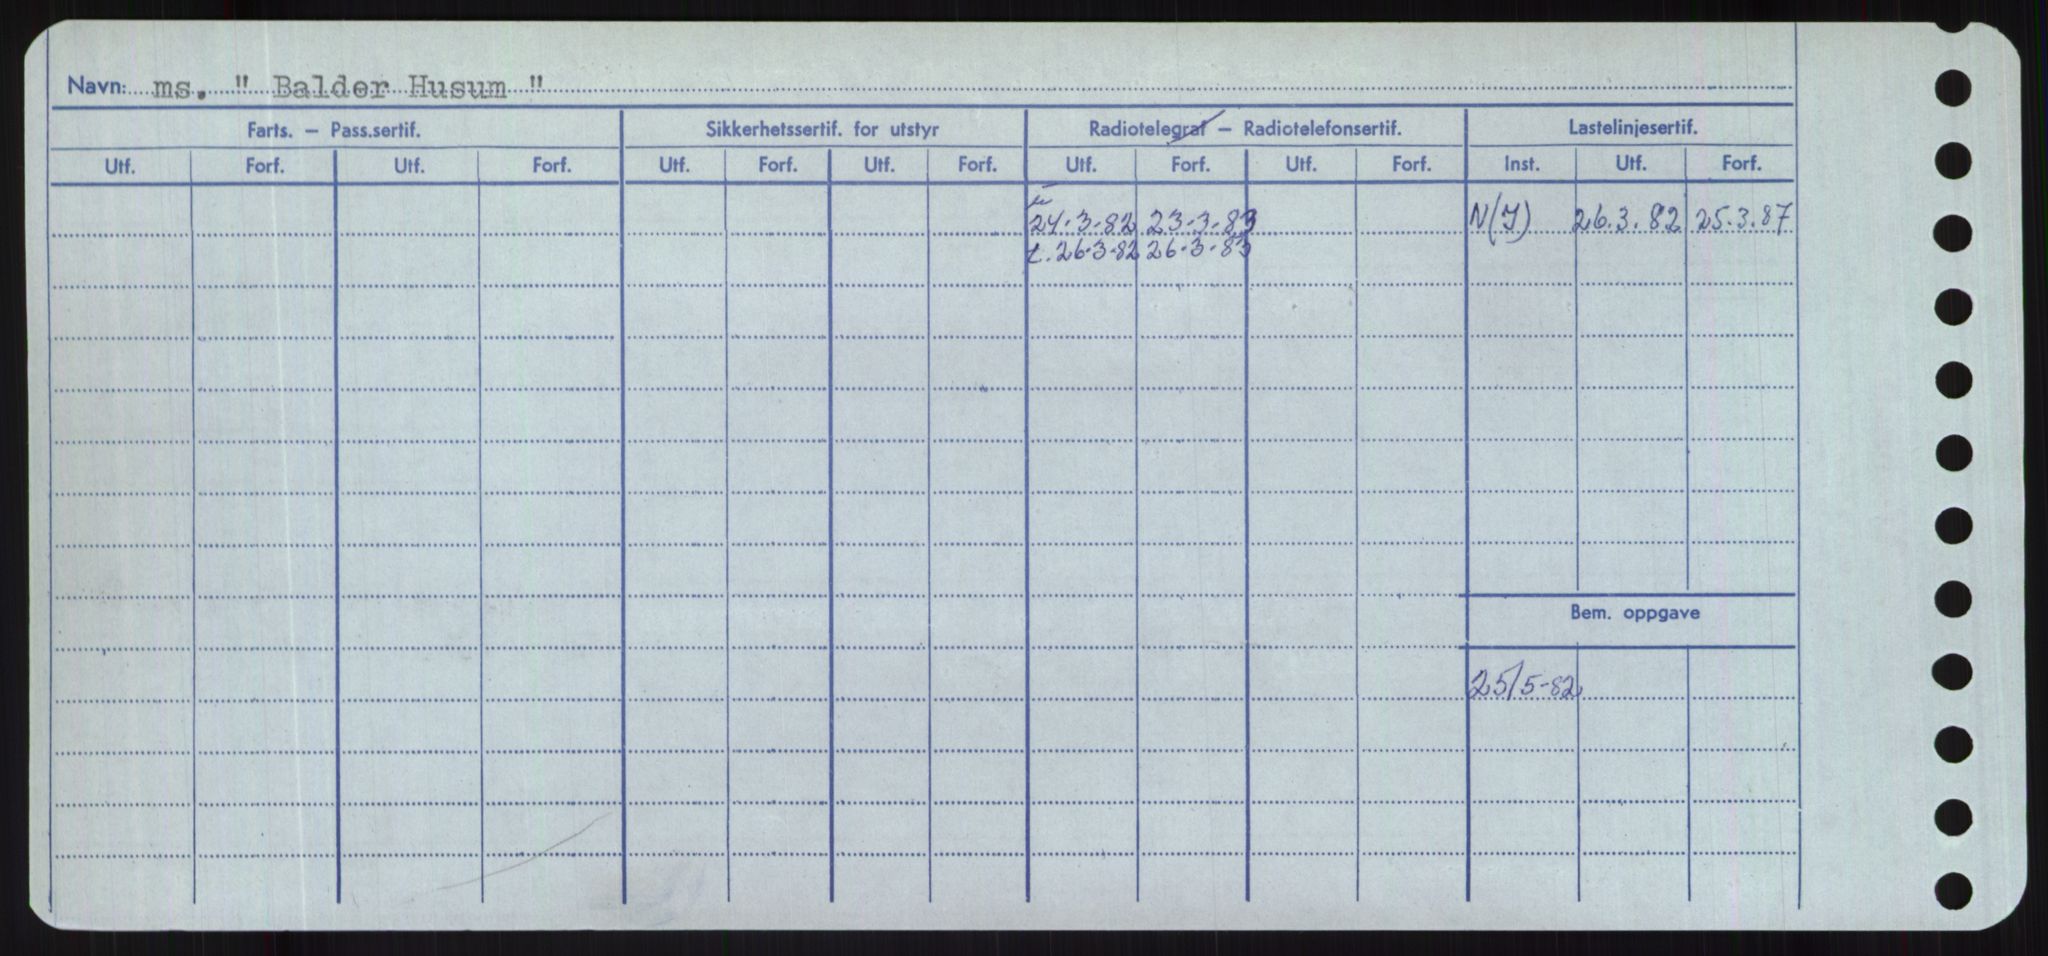 Navn: ms. " Balder Husum "
Farts. – Pass.sertif. Sikkerhetssertif. for utstyr Radiotelegraf – Radiotelefonsertif. Lastelinjesertif.
Utf. Forf. Utf. Forf. Utf. Forf. Utf. Forf. Utf. Forf. Utf. Forf. Inst. Utf. Forf.
24.3-82 23-3-83 N(I) 26.3.82 25.3.87
t. 26-3-82 26-3-83
Bem. oppgave
25/5-82